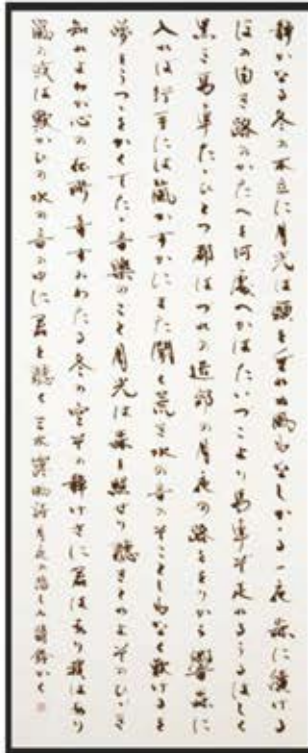 静かなる冬の木立に月光は頭を垂れぬ風もなしかかる一夜森に續ける
ほの白き路のかたへを何處へかはたいつこより馬車そ走れるうるはしく
黒き馬車たゝひとつ都はつれの近郊の月夜の路をとりから響森に
入れは行手には嵐かすかにまた聞く荒き水の音のそことしもなく歎けるを
夢とうつゝをかくてたゝ音樂のこと月光は森を照せり聴きとめよそのひゝき
知れよわか心の在所音すみわたる冬の空その静けさに君はあり我はあり
風の或は歎かひの水の音の中に君を聴く三木露風詩月夜の かく